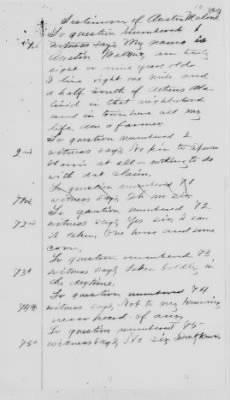 Testimony of Austin Malone
To question numbered 1
1st witness says My name is
Austin Malone, am thirty
eight or nine years old
I live right one mile and
a half South of Athens Ala
lived in that neighborhood
and in town here all my
life, am a farmer.
To question numbered 2
2nd witness says No kin to
at all - nothing to do
with dat claim.
To question numbered 71
71st witness says
To question numbered 72
72nd witness says Yes sir, I saw
it taken, One horse and some
corn.
To question numbered 73
73d witness says taken boldly in
the daytime.
To question numbered 74
74th witness says Not to my knowing
never heard of any.
To question numbered 75
75th witness says No sir